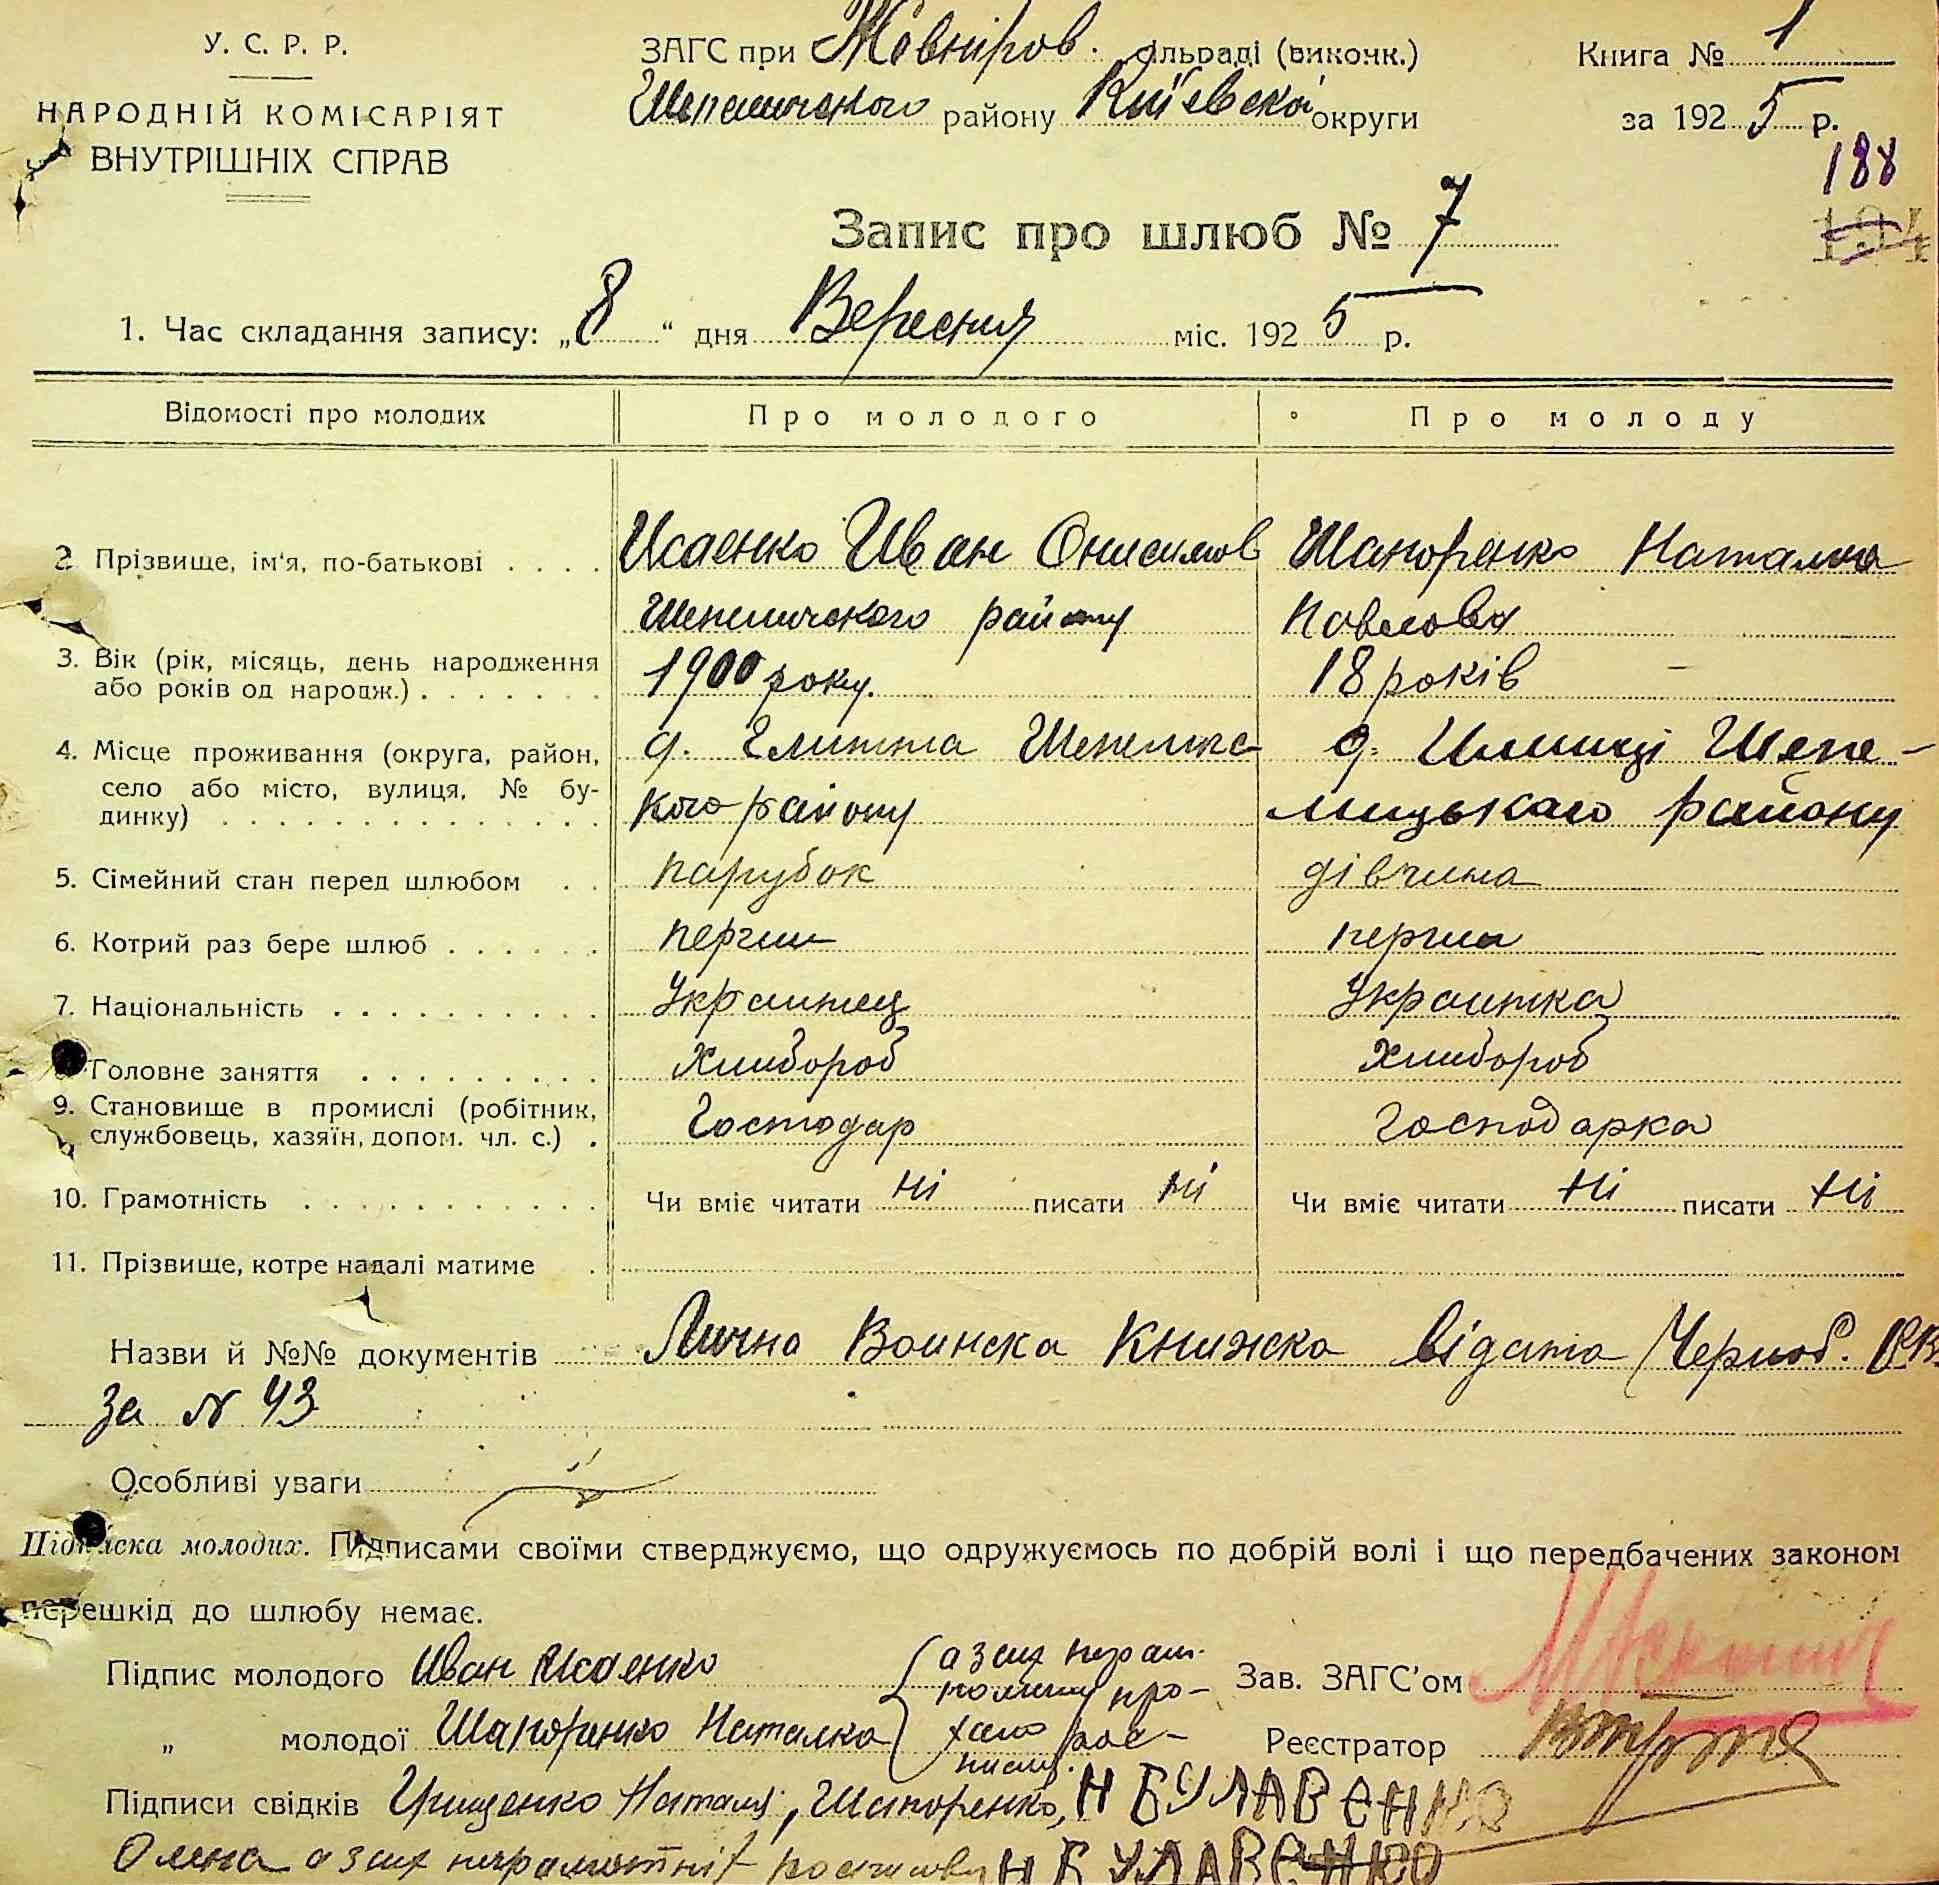 У. С. Р. Р.
НАРОДНІЙ КОМІСАРІЯТ
ВНУТРІШНІХ СПРАВ
ЗАГС при Жовніров. сільраді (викочк.)
Шепеличского району Київской округи
Книга № 1
за 1925 р.
188
194
Запис про шлюб № 7
1. Час складання запису: „8“ дня Вересния міс. 1925 р.
Відомості про молодих Про молодого Про молоду
2 Прізвище, ім'я, по-батькові Исаенко Иван Онисимов Шапоренко Наталка
Шепеличского району Павлова
3. Вік (рік, місяць, день народження або років од народж.) 1900 року. 18 років
4. Місце проживання (округа, район, село або місто, вулиця, № будинку) д. Глинка Шепеличс- д. Илинці Шепе-
кого району лицькаго району
5. Сімейний стан перед шлюбом парубок дівчина
6. Котрий раз бере шлюб перший перша
7. Національність Украинец Украинка
Головне заняття Хлибороб Хлибороб
9. Становище в промислі (робітник, службовець, хазяїн, допом. чл. с.) Господар Господарка
10. Грамотність Чи вміє читати Ні писати Ні Чи вміє читати Ні писати Ні
11. Прізвище, котре надалі матиме
Назви й №№ документів Лична Воинска Книжка відана Черноб.
За № 43
Особливі уваги
Підписка молодих. Підписами своїми стверджуємо, що одружуємось по добрій волі і що передбачених законом
перешкід до шлюбу немає.
Підпис молодого Иван Исаенко
„ молодої Шапоренко Наталка
а за их
Зав. ЗАГС'ом
Реєстратор
Підписи свідків Грищенко Наталя, Шапоренко, Н БУЛАВЕНКО
Олена а за их неграмотніх Н БУЛАВЕНКО